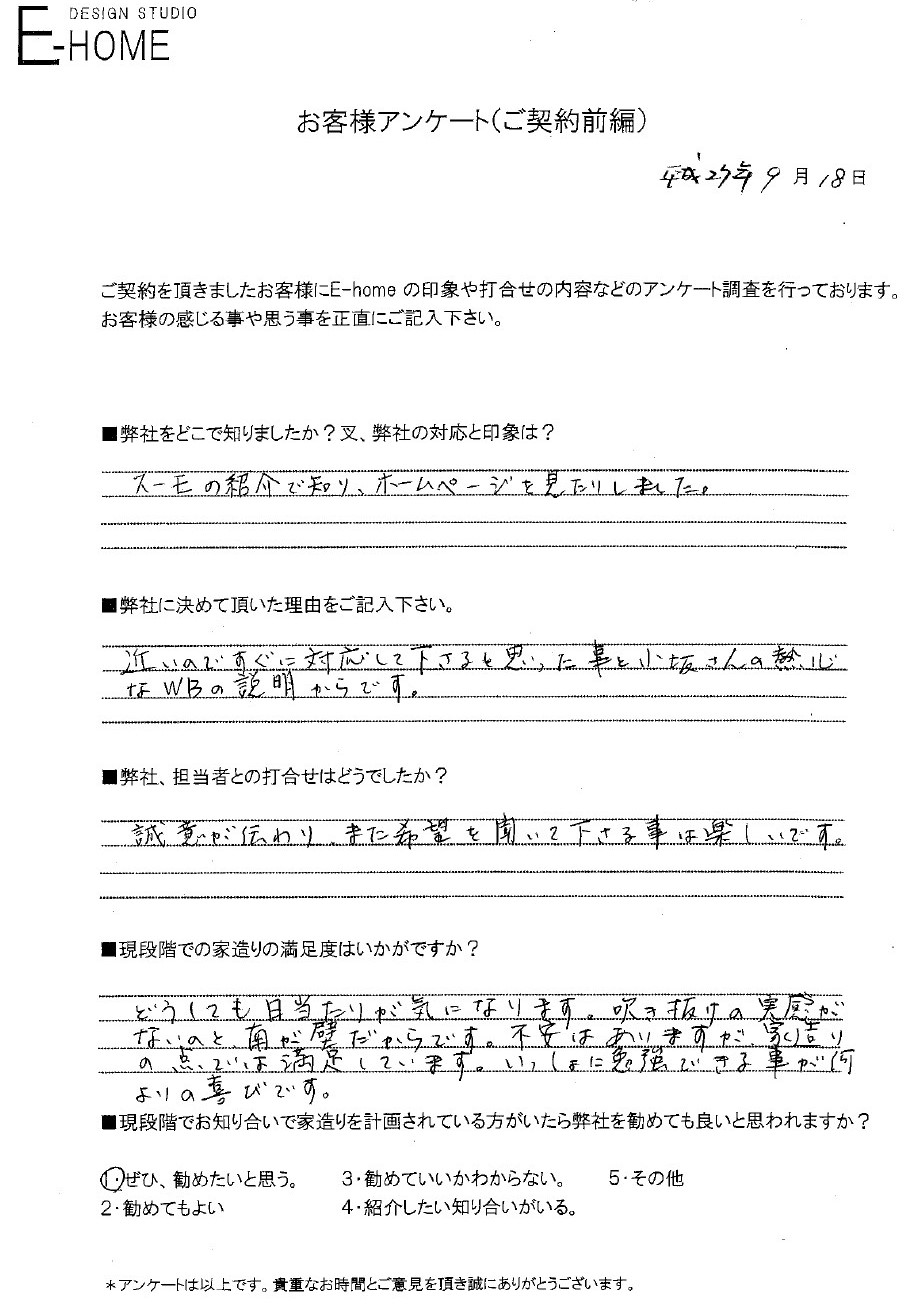 DESIGN STUDIO
E-HOME
お客様アンケート(ご契約前編)
平成27年9月18日
ご契約を頂きましたお客様にE-home の印象や打合せの内容などのアンケート調査を行っております。
お客様の感じる事や思う事を正直にご記入下さい。
■弊社をどこで知りましたか？叉、弊社の対応と印象は？
スーモの紹介で知り、ホームページを見たりしました。
■弊社に決めて頂いた理由をご記入下さい。
近いのですぐに対応して下さると思った事と小坂さんの熱心
なWBの説明からです。
■弊社、担当者との打合せはどうでしたか？
誠意が伝わり、また希望を聞いて下さる事は楽しいです。
■現段階での家造りの満足度はいかがですか？
どうしても日当たりが気になります。吹き抜けの実感が
ないのと、南が壁だからです。不安はありますが、家造り
の点では満足しています。いっしょに勉強できる事が何
よりの喜びです。
■現段階でお知り合いで家造りを計画されている方がいたら弊社を勧めても良いと思われますか？
1・ぜひ、勧めたいと思う。 3・勧めていいかわからない。 5・その他
2・勧めてもよい 4・紹介したい知り合いがいる。
＊アンケートは以上です。貴重なお時間とご意見を頂き誠にありがとうございます。